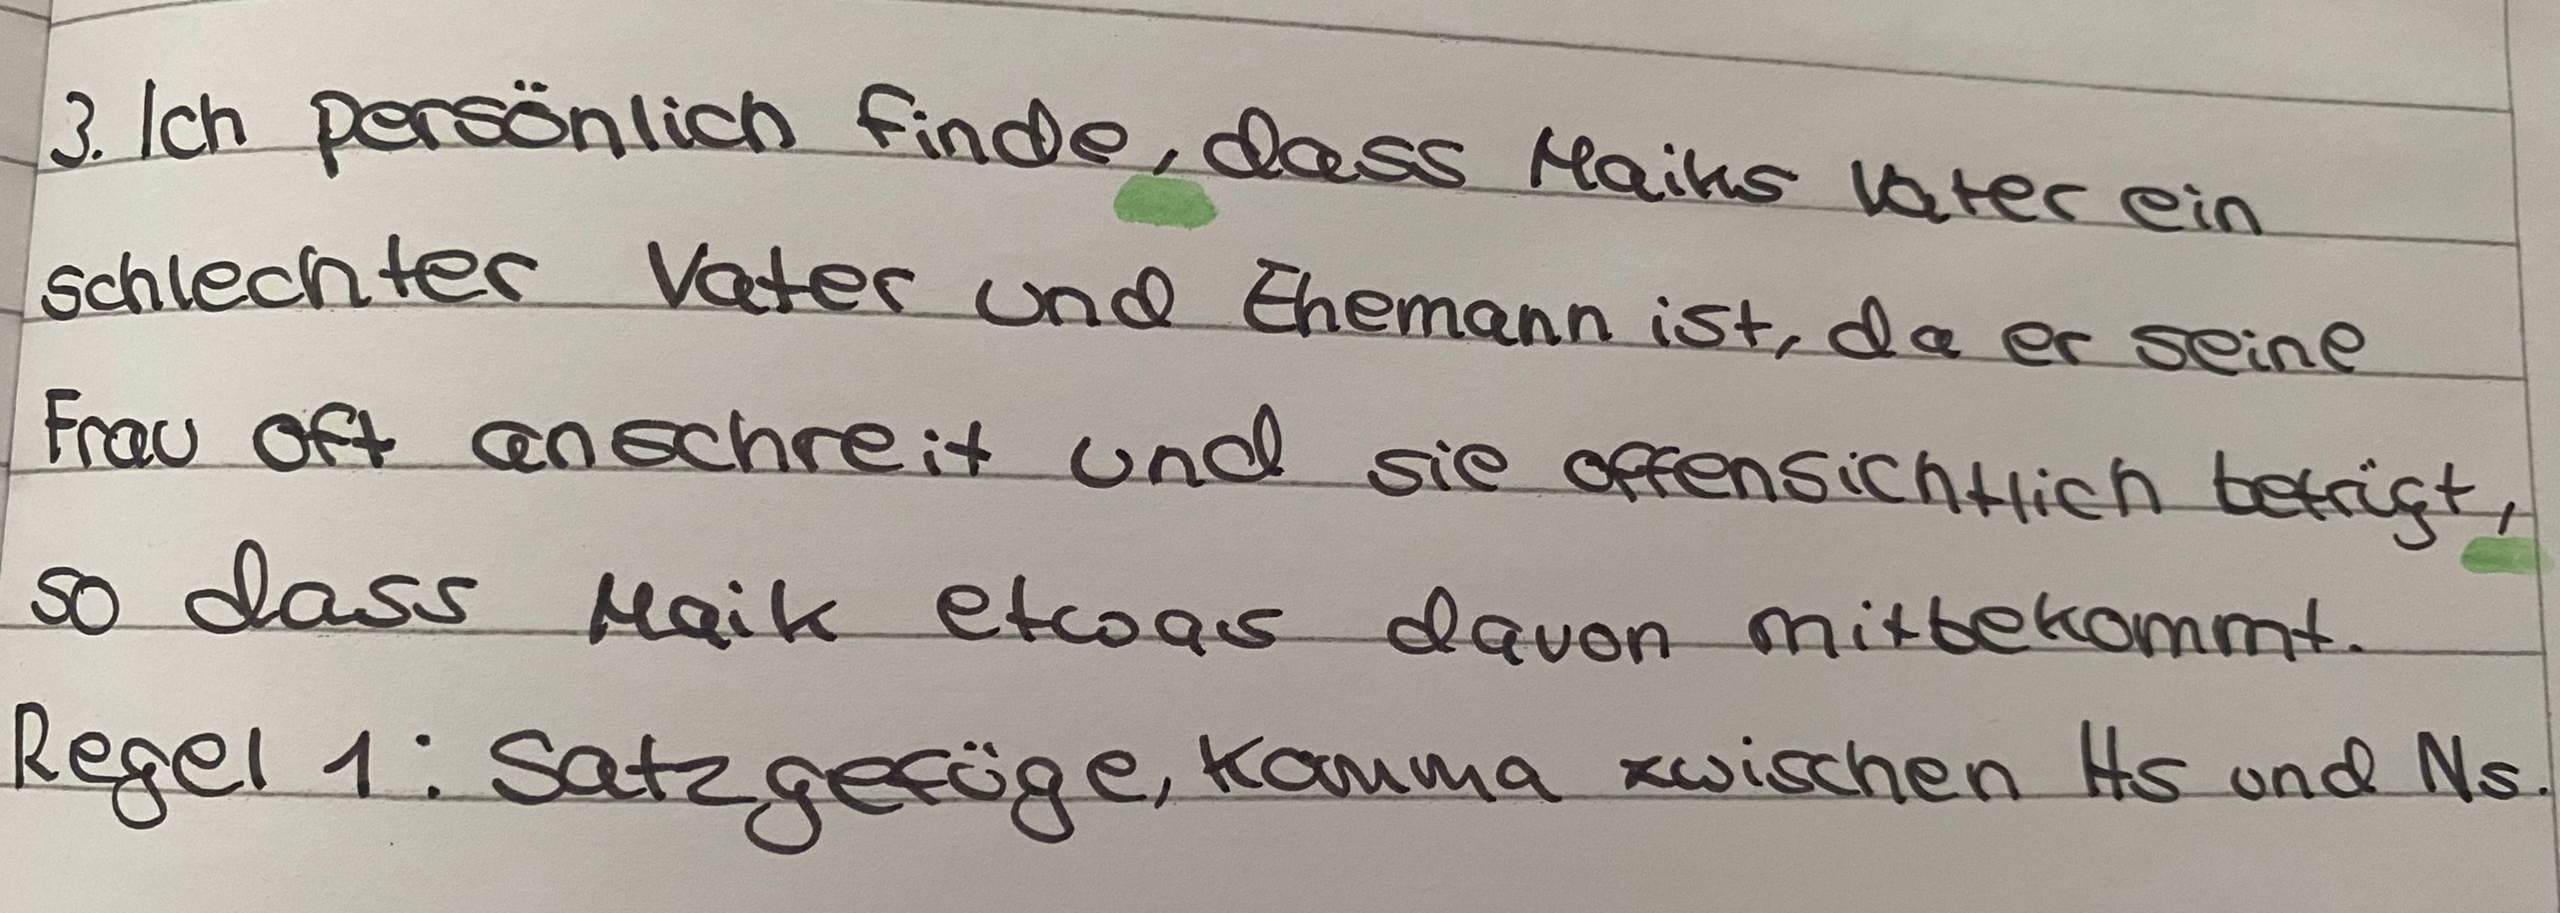 3. Ich persönlich finde, dass Maiks Vater ein
schlechter Vater und Ehemann ist, da er seine
Frau oft anschreit und sie offensichtlich betrügt,
so dass Maik etwas davon mitbekommt.
Regel 1: Satzgefüge, Komma zwischen Hs und Ns.